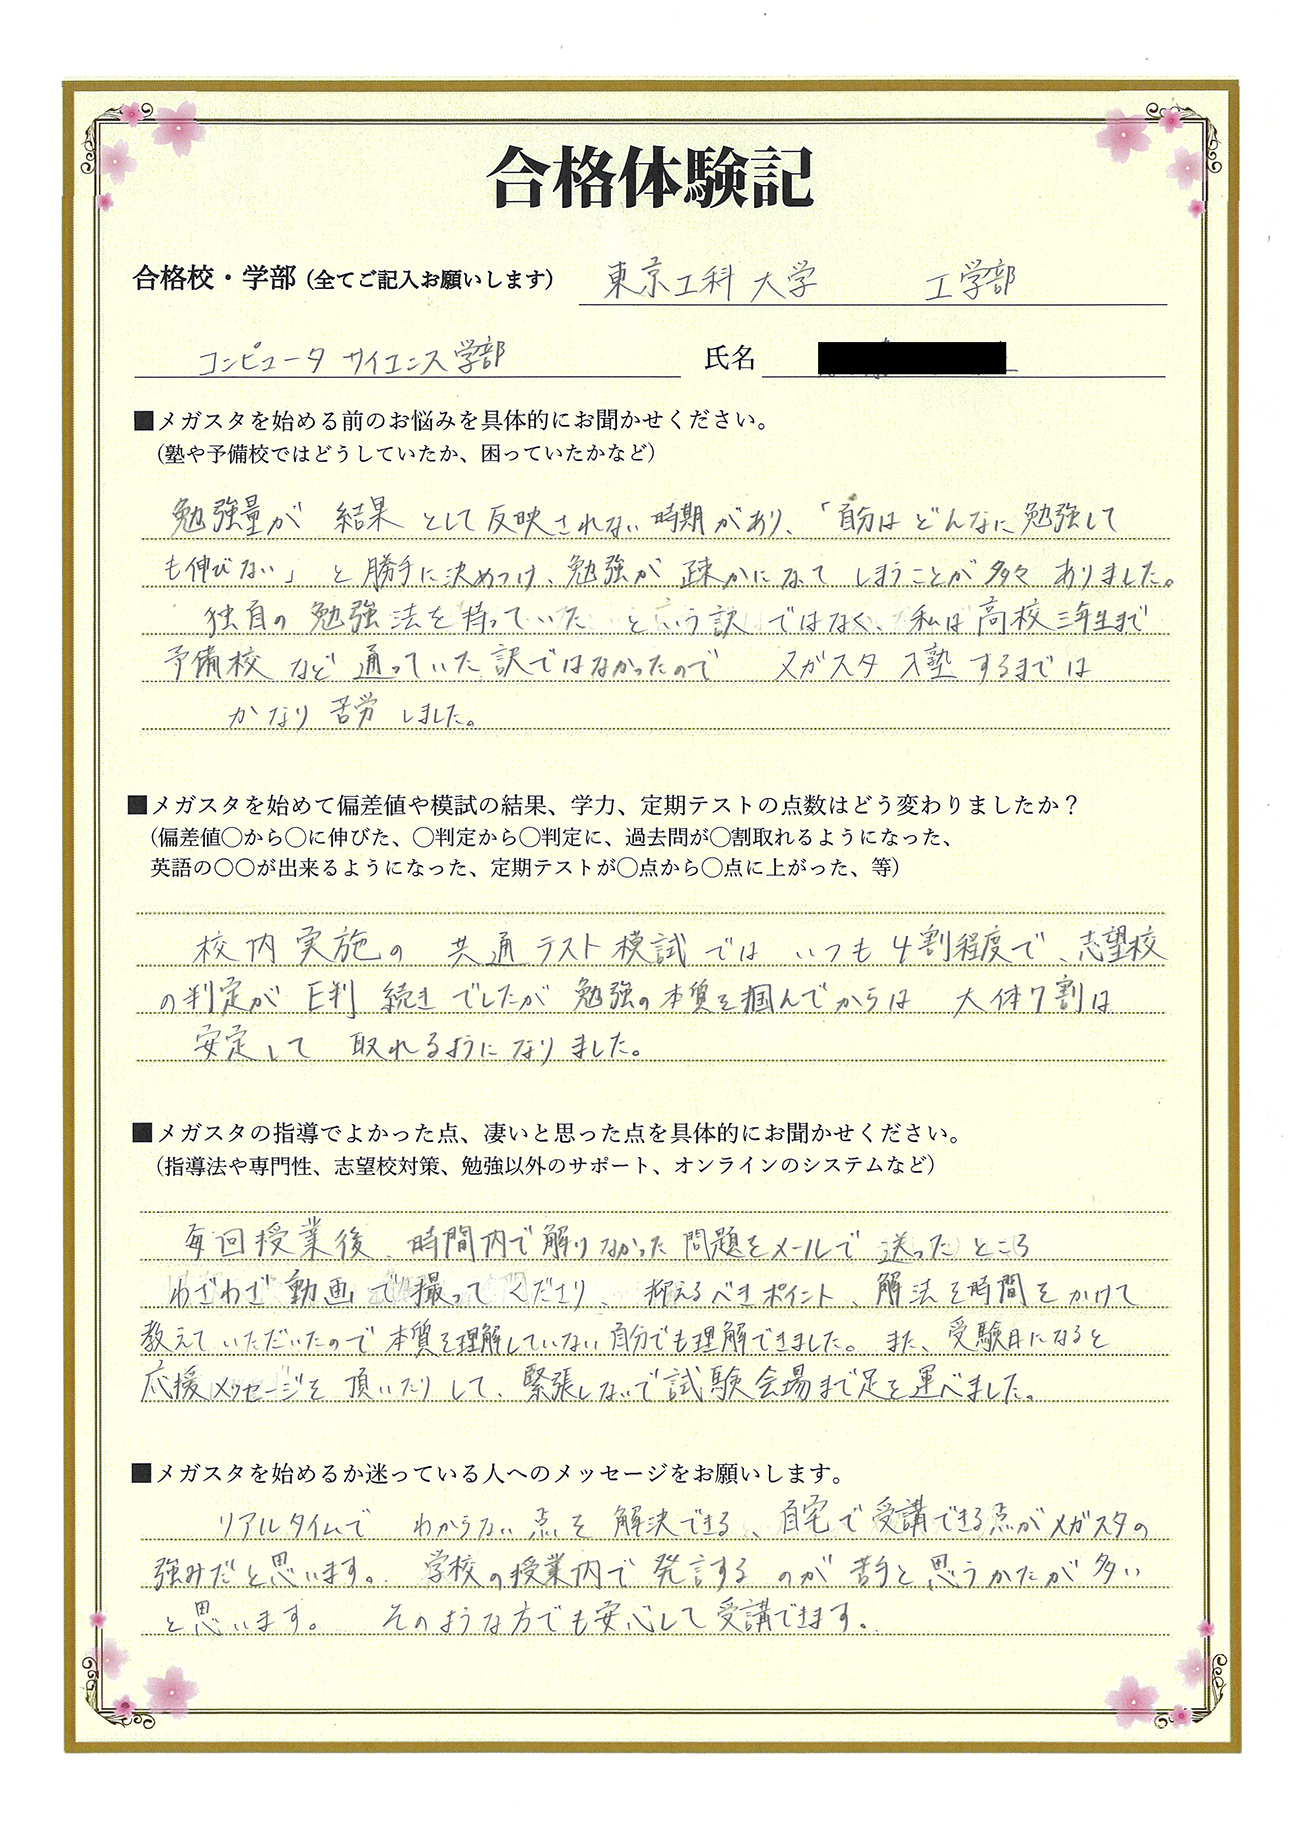 合格体験記
合格校・学部（全てご記入お願いします） 東京工科大学 工学部
コンピュータサイエンス学部 氏名
■メガスタを始める前のお悩みを具体的にお聞かせください。
（塾や予備校ではどうしていたか、困っていたかなど）
勉強量が 結果として反映されない時期があり、「自分はどんなに勉強して
も伸びない」と勝手に決めつけ、勉強が 疎かになってしまうことが多々ありました。
独自の勉強法を持っていたという訳ではなく、私は高校三年生まで
予備校など通っていた訳ではなかったので メガスタ入塾するまでは
かなり苦労しました。
■メガスタを始めて偏差値や模試の結果、学力、定期テストの点数はどう変わりましたか？
（偏差値〇から〇に伸びた、〇判定から〇判定に、過去問が〇割取れるようになった、
英語の〇〇が出来るようになった、定期テストが〇点から〇点に上がった、等）
校内実施の共通テスト模試ではいつも4割程度で、志望校
の判定がE判続きでしたが勉強の本質を掴んでからは 大体7割は
安定して取れるようになりました。
■メガスタの指導でよかった点、凄いと思った点を具体的にお聞かせください。
（指導法や専門性、志望校対策、勉強以外のサポート、オンラインのシステムなど）
毎回授業後、時間内で解りなかった問題をメールで送ったところ
わざわざ動画で撮ってくださり、抑えるべきポイント、解法を時間をかけて
教えていただいたので本質を理解していない自分でも理解できました。また、受験日になると
応援メッセージを頂いたりして、緊張しないで試験会場まで足を運べました。
■メガスタを始めるか迷っている人へのメッセージをお願いします。
リアルタイムで わからない点を解決できる、自宅で受講できる点がメガスタの
強みだと思います。学校の授業内で発言するのが苦手と思うかたが多い
と思います。そのような方でも安心して受講できます。